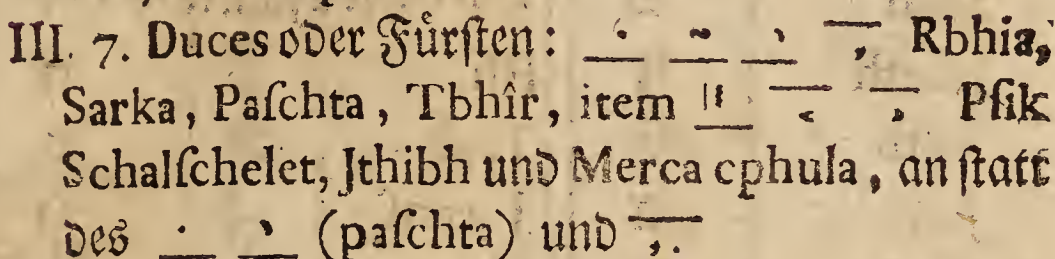 III. 7. Duces oder Fürſten: Rbhia,
Sarka, Paſchta, Tbhîr, item Pſik
Schalſchelet, Jthibh und Merca cphula, an ſtatt
des (paſchta) und